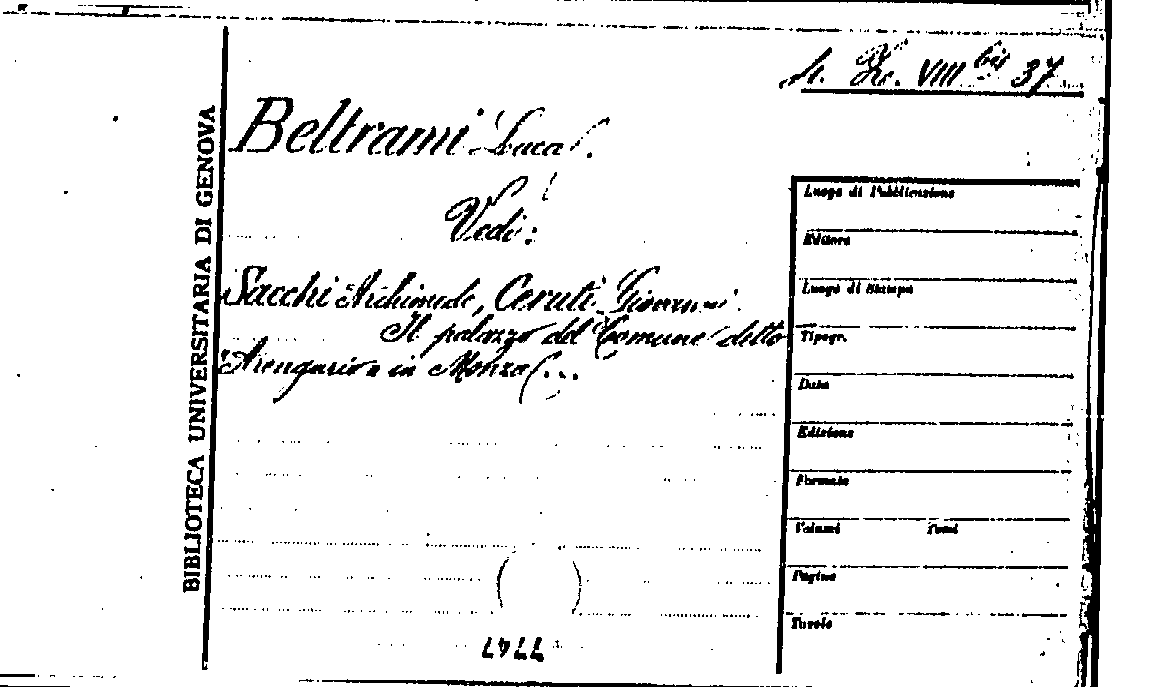 Zc. VIII bis 37
Beltrami Luca.
Vedi:
Sacchi Archimede, Ceruti Giovanni.
Il palazzo del Comune detto
Arengario in Monza ...
BIBLIOTECA UNIVERSITARIA DI GENOVA
Luogo di Pubblicazione
Editore
Luogo di Stampa
Tipogr.
Data
Edizione
Formato
Volumi Tomi
Pagine
Tavole
( )
7747